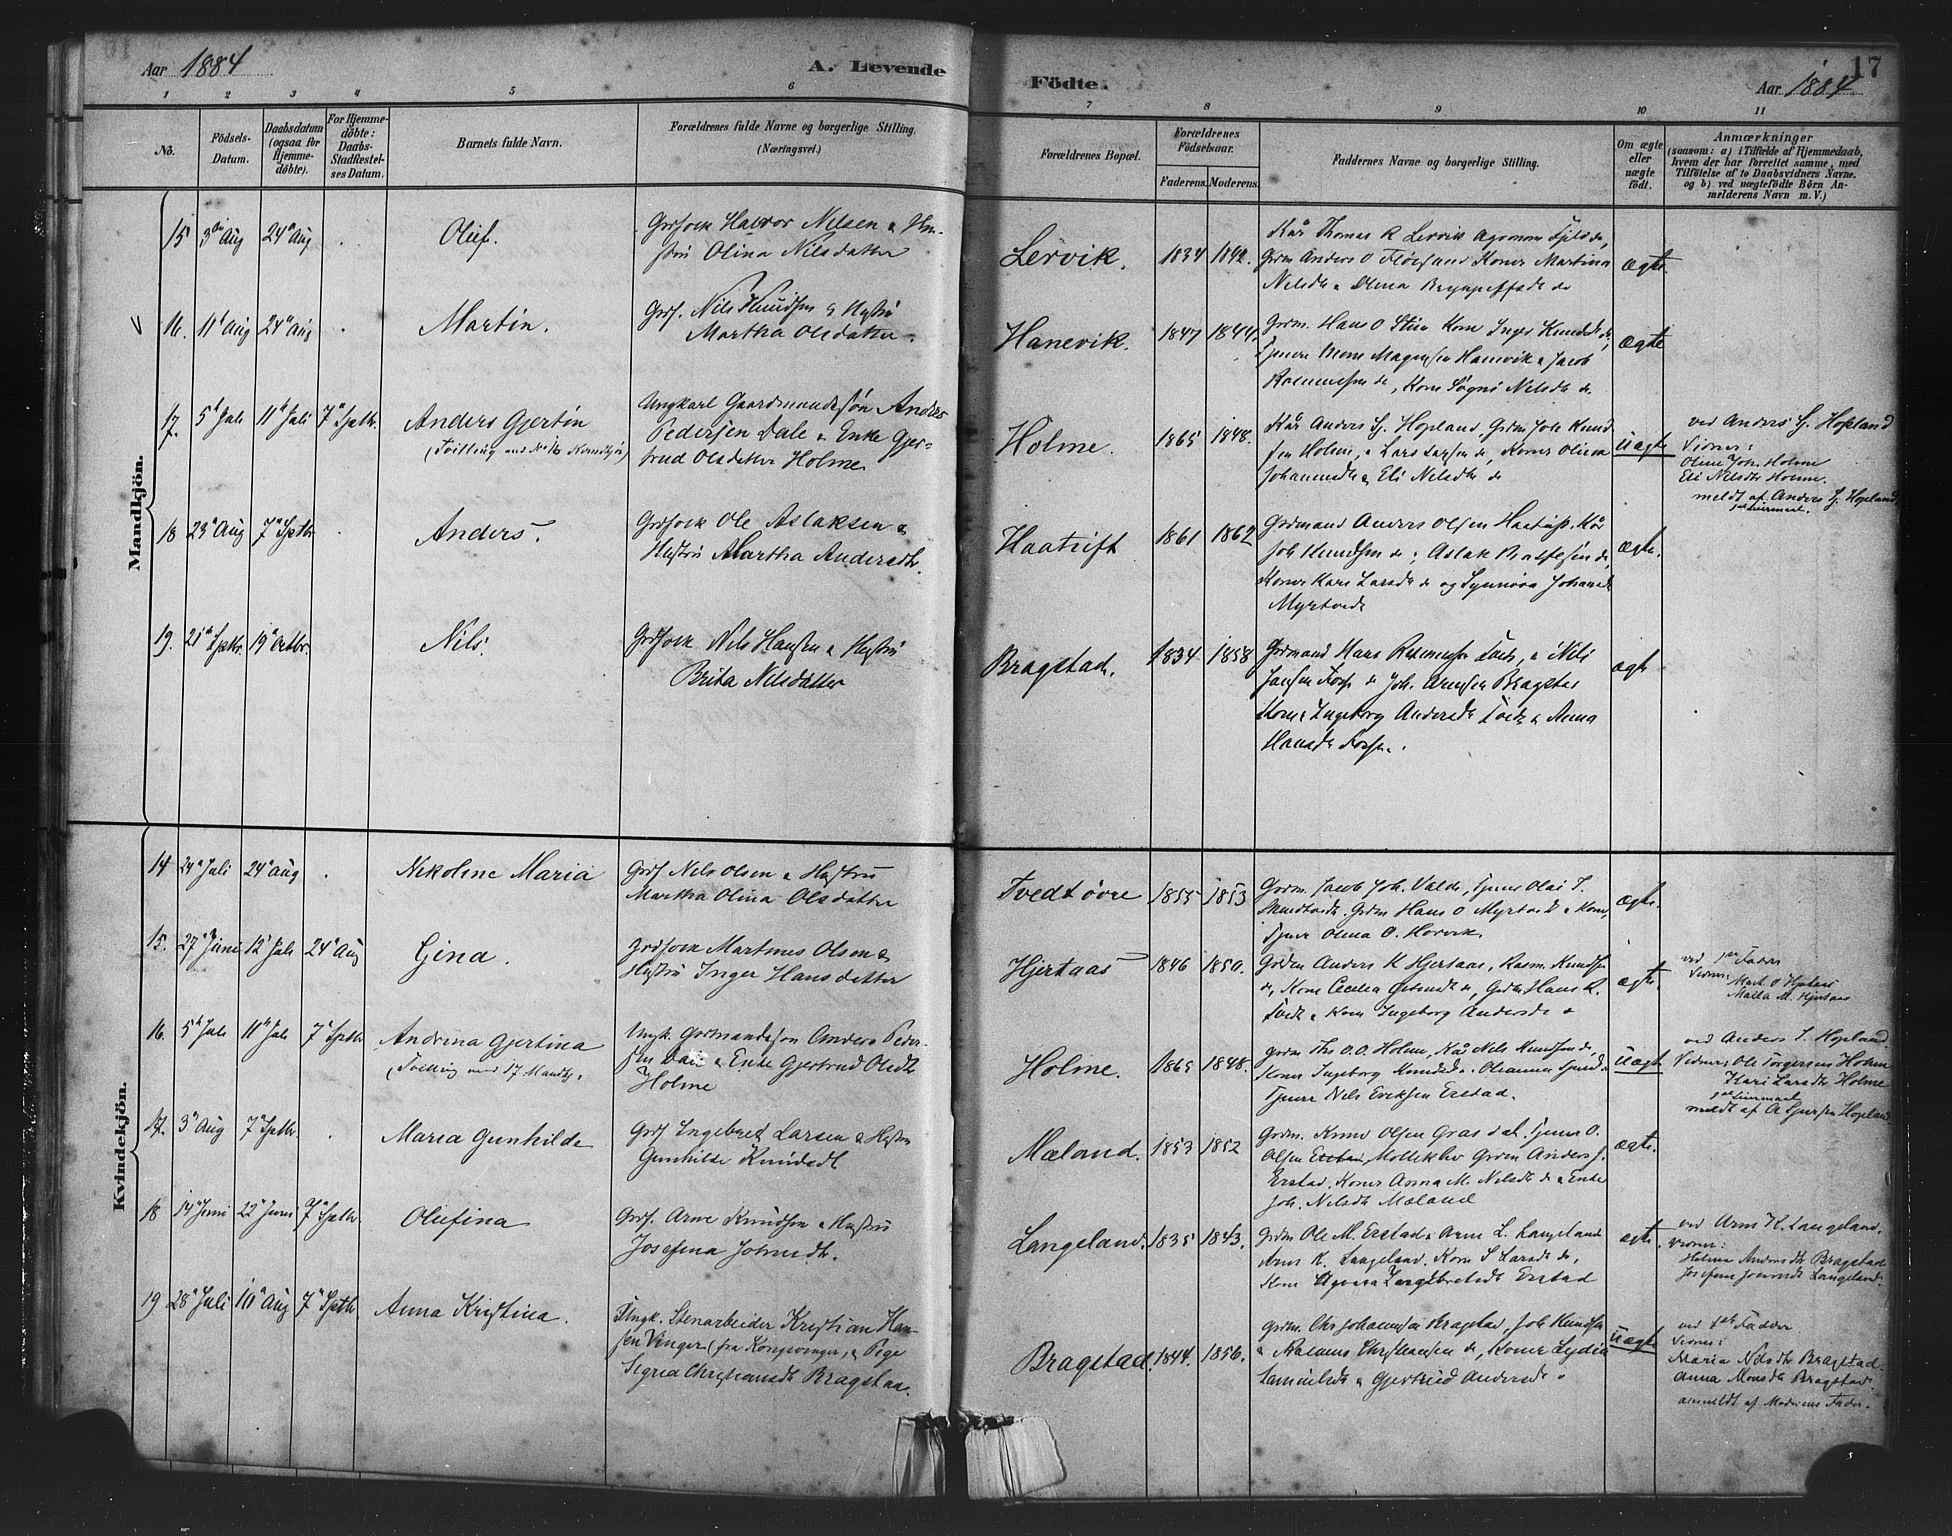 Aar 1884
A. Levende
Födte.
Aar 1884
17
1 2 3 4 5 6 7 8 9 10 11
No.
Födsels-
Datum.
Daabsdatum
(ogsaa for
Hjemme-
döbte).
For Hjemme-
döbte:
Daabs-
Stadfæstel-
ses Datum.
Barnets fulde Navn.
Forældrenes fulde Navne og borgerlige Stilling.
(Næringsvei.)
Forældrenes Bopæl.
Forældrenes
Födselsaar.
Faderens. Moderens.
Faddernes Navne og borgerlige Stilling.
Om ægte
eller
uægte
födt.
Anmærkninger
(saasom: a) i Tilfælde af Hjemmedaab,
hvem der har forrettet samme, med
Tilföielse af to Daabsvidners Navne.
og b) ved uægtefödte Börn An-
melderens Navn m. V.)
Mandkjön.
15 3die Aug 24de Aug
Oluf.
Grdfolk Halvor Nilsen & Hu-
stru Olina Nilsdatter
Lervik. 1834 1842.
Kår Thomas R Lervik Agronom
Grdm Anders O Kone Martina
Nilsdtr
ægte.
16. 11te Aug 24de Aug
Martin.
Grdf. Nils Knudsen & Hustru
Martha Olsdatter.
Hanevik. 1847 1844.
Grdm. Hans O Kone Inger Knudsdtr do,
Tjener Magnesen Hanevik & Jacob
Rasmussen do, Kone Nilsdtr do.
ægte
17. 5te Juli 11te Juli 7de Septbr.
Anders Gjertin
(Tvilling med No 16 Kvindekjön)
Ungkarl Gaardmandssön Anders
Pedersen Dale & Enke Gjer-
trud Olsdatter Holme
Holme. 1865 1848.
Kår Anders Hopland, Grdm Joh Knud-
sen Holme, & Lars Larsen do, Koner Olina
Johannesdtr & Eli Nilsdtr do
uægte
ved Anders Hopland
Vidner:
Oline Joh. Holme
Eli Nilsdtr Holme.
meldt af Anders Hopland
18 23de Aug 7de Septbr
Anders.
Grdfolk Ole Aslaksen &
Hustru Martha Andersdtr.
Haatuft 1861 1862
Grdmand Anders Olsen Haatuft, Kår
Joh Knudsen do, Aslak do,
Koner Kari Larsdtr do og Synnöva Johansdtr
Myrtvedt
ægte.
19. 21de Septbr. 19de Octbr.
Nils.
Grdfolk Nils Hansen & Hustru
Brita Nilsdatter
Bragstad. 1834 1858
Grdmand Hans Rasmussen Tvedt, & Nils
Jansen Fosse & Joh. Arnesen Bragstad
Kone Ingeborg Andersdtr Tvedt & Anna
Hansdtr Fosse.
ægte
Kvindekjön.
14 24de Juli 24de Aug
Nikoline Maria
Grdf Nils Olsen & Hustru
Martha Olina Olsdatter
Tvedt övre 1855 1853
Grdm. Jacob Joh. Valde, Tjener Olai T.
Grdm Hans O Myrtvedt & Kone,
Tjener Olina O. Horvik.
ægte.
15. 27de Juni 12te Juli 24de Aug
Gina.
Grdfolk Martines Olsen &
Hustru Inger Hansdatter
Hjertaas 1846 1850.
Grdm Anders K Hjertaas, Rasm. Knudsen
do, Kone Cecilia do, Grdm Hans R.
Tvedt & Kone Ingeborg Andersdtr do
ægte.
ved Fader
Vidner:
Mart. O Hjertaas
Malla M. Hjertaas
16. 5te Juli 11te Juli 7de Septbr
Andrina Gjertina
(Tvilling med 17 Mandkj.
Ungk. Grdmandssön Anders Peder-
sen Dale & Enke Gjertrud Olsdtr
Holme
Holme. 1865 1848.
Grdm Ths O.O. Holme, Kår Nils Knudsen do,
Koner Ingeborg Knudsdtr & Oleanna
Tjener Nils Eriksen Erstad.
uægte
ved Anders Hopland
Vidner, Ole Torgersen Holme
Kari Larsdtr Holme
meldt af A Hopland
17. 3die Aug 7de Septbr.
Maria Gunhilde
Grdf Ingebret Larsen & Hustru
Gunhilde Knudsdtr
Mæland. 1853 1852
Grdm. Knud Olsen Grasdal. Tjener O.
Olsen Mollekleiv Grdm Anders J.
Erstad, Koner Anna M. Nilsdtr do & Enke
Joh. Nilsdtr Mæland
ægte.
18 14de Juni 22de Juni 7de Septbr.
Olufina
Grdf. Arne Knudsen & Hustru
Josefina Johnsdtr.
Langeland. 1835 1843.
Grdm Ole M. Erstad & Arne L. Langeland
Arne K. Langeland. Kone S Larsdtr do,
Kone Ingebretsdtr Erstad
ægte.
ved Arne K. Langeland.
Vidner:
Helena Andersdtr Bragstad
Josefine Langeland.
19 28de Juli 10de Aug 7de Septbr.
Anna Kristina.
Ungk. Stenarbeider Kristian Han-
sen Vinger (fra Kongsvinger, & Pige
Sigrid Christiansdtr Bragstad.
Bragstad. 1844. 1856.
Grdm. Chr Johannesen Bragstad, Joh Knudsen
& Rasmus Christiansen do, Koner Lydia
Samuelsdtr & Gjertrud Andersdtr do
uægte
ved Fader
Vidner:
Maria Nilsdtr Bragstad.
Anna Monsdtr Bragstad.
anmeldt af Moderens Fader.